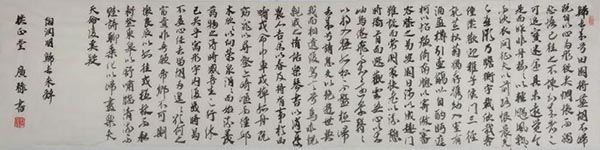 歸去來兮田園將蕪胡不歸
既自以心為形役奚惆悵而獨
悲悟已往之不諫知來者之
可追實迷途其未遠覺今
是而昨非舟遙遙以輕颺風飄飄
而吹衣問征夫以前路恨晨光
之熹微乃瞻衡宇載欣載奔
僮僕歡迎稚子候門三徑
就荒松菊猶存攜幼入室有
酒盈樽引壺觴以自酌眄庭
柯以怡顏倚南窗以寄傲審
容膝之易安園日涉以成趣門
雖設而常關策扶老以流憩
時矯首而遐觀雲無心以出
岫鳥倦飛而知還景翳翳以
將入撫孤松而盤桓歸
去來兮請息交以絕遊世與
我而相違復駕言兮焉求悅
親戚之情話樂琴書以消憂
農人告余以春及將有事於西
疇或命巾車或棹孤舟既
窈窕以尋壑亦崎嶇而經丘
木欣欣以向榮泉涓涓而始流羨
萬物之得時感吾生之行休
已矣乎寓形宇內復幾時曷
不委心任去留胡為乎遑遑欲何之
富貴非吾願帝鄉不可期
懷良辰以孤往或植杖而耘
耔登東皋以舒嘯臨清流而
賦詩聊乘化以歸盡樂夫
天命復奚疑
陶淵明歸去來辭
正堂 廣 書